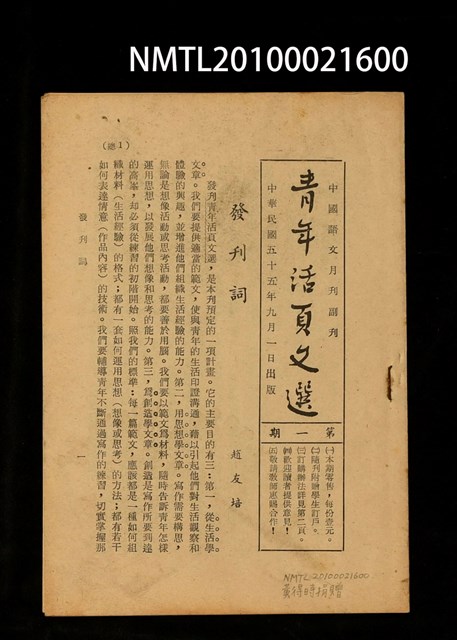 NMTL20100021600
中國語文月刊副刊
青年活頁文選
中華民國五十五年九月一日出版
第一期
㈠本期零售，每份壹元。
㈡隨刊附贈學生訂戶。
㈢訂購辦法詳見第二頁。
㈣歡迎讀者提供意見！
㈤敬請教師惠賜合作！
發刊詞
趙友培
發刊青年活頁文選，是本刊預定的一項計畫。它的主要目的有三：第一，從生活學
文章。我們要提供適當的範文，使與青年的生活印證溝通，藉以引起他們對生活觀察和
體驗的興趣，並增進他們組織生活經驗的能力。第二，用思想學文章。寫作需要構思，
無論是想像活動或思考活動，都要善於用腦。我們要以範文爲材料，隨時告訴青年怎樣
運用思想，以發展他們想像和思考的能力。第三，爲創造學文章。創造是寫作所要到達
的高峯，却必須從練習的初階開始。照我們的標準：每一篇範文，應該都是一種如何組
織材料（生活經驗）的格式；都有一套如何運用思想（想像或思考）的方法；都有若干
如何表達情意（作品內容）的技術。我們要輔導青年不斷通過寫作的練習，切實掌握那
（總1）
發刊詞
一
NMTL20100021600
黃得時捐贈